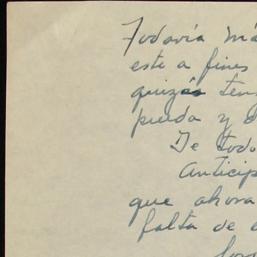 Todavía má
este a fines
quizás ten
pueda y d
De todo
Anticip
que ahora
falta de